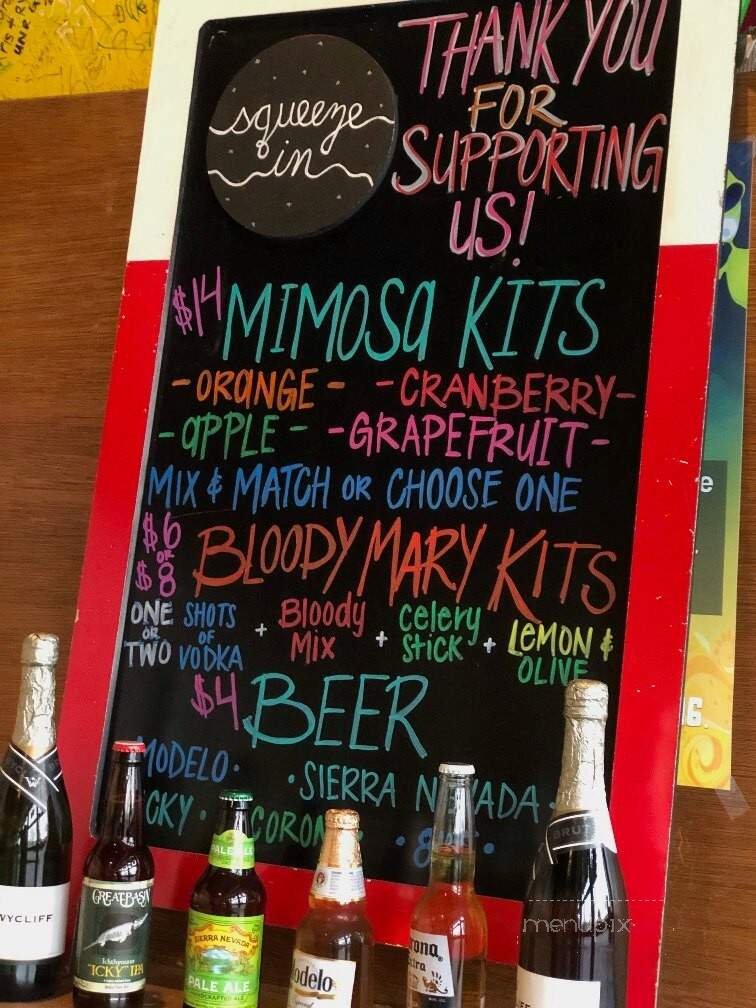 squeeze
in
THANK YOU
FOR
SUPPORTING
US!
$14 MIMOSA KITS
-ORANGE- -CRANBERRY-
-APPLE- -GRAPEFRUIT-
MIX & MATCH OR CHOOSE ONE
$6 OR $8 BLOODY MARY KITS
ONE OR TWO SHOTS OF VODKA + Bloody Mix + Celery Stick + LEMON & OLIVE
$4 BEER
MODELO · · SIERRA NEVADA ·
CKY · CORON
WYCLIFF
GREAT BASIN
Ichthyosaur
"ICKY" IPA
PALE ALE
SIERRA NEVADA
PALE ALE
odelo
rona
xtra
BRUT
menupix